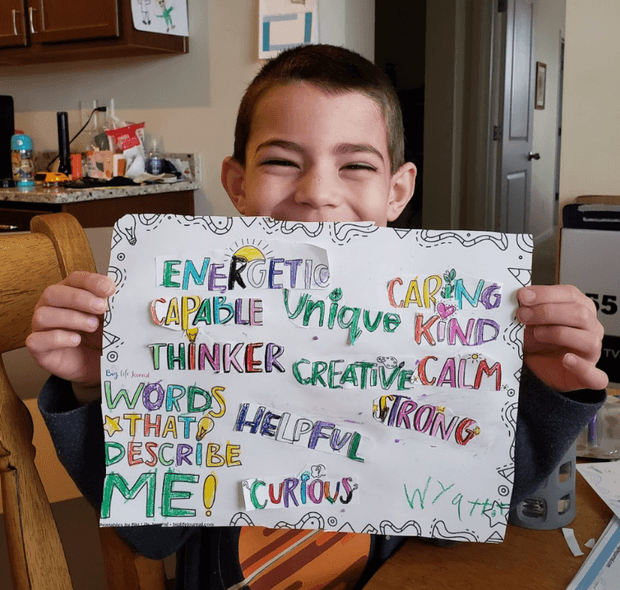 ENERGETIC
CARING
CAPABLE
UNiQUe
KiND
THINKER
CREATIVE
CALM
Big Life Journal
WORDS
THAT
DESCRIBE
ME!
HELPFUL
STRONG
CURIOUS
Wyatt
55
TV